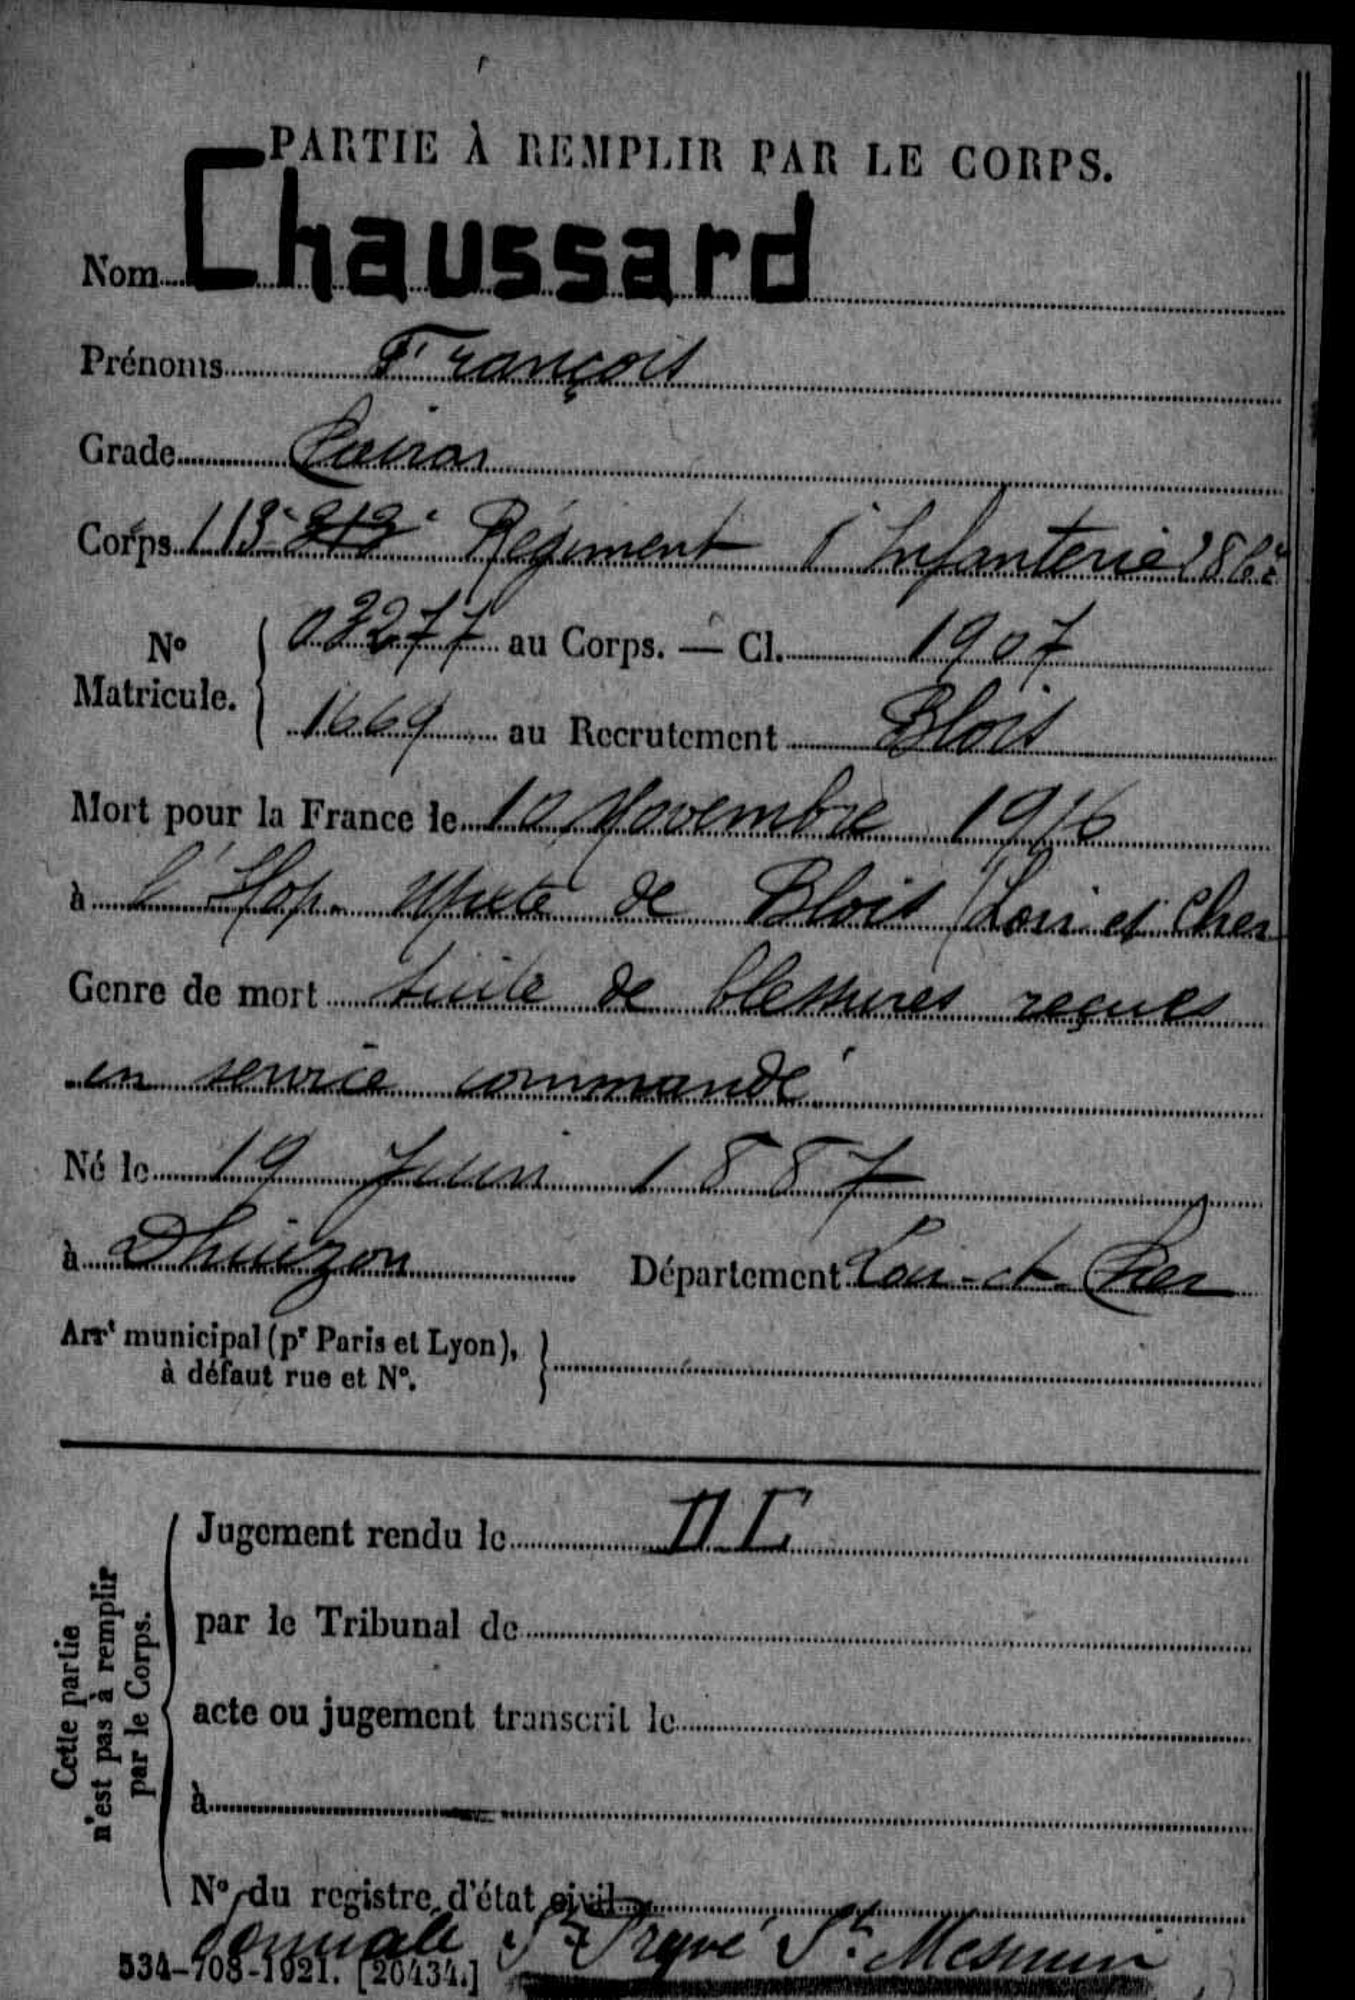 PARTIE À REMPLIR PAR LE CORPS.
Nom Chaussard
Prénoms François
Grade
Corps 113e 313e Régiment d'Infanterie
No Matricule. 03277 au Corps. — Cl. 1907
1669 au Recrutement Blois
Mort pour la France le 10 Novembre 1916
à l'Hop. Mixte de Blois (Loir et Cher
Genre de mort suite de blessures reçues
en service commandé
Né le 19 Juin 1887
à Dhuizon Département Loir-et-Cher
Arrt municipal (pr Paris et Lyon),
à défaut rue et No.
Cette partie
n'est pas à remplir
par le Corps.
Jugement rendu le
par le Tribunal de
acte ou jugement transcrit le
à
No du registre d'état civil
St Pryvé St Mesmin
534-708-1921. [26434.]